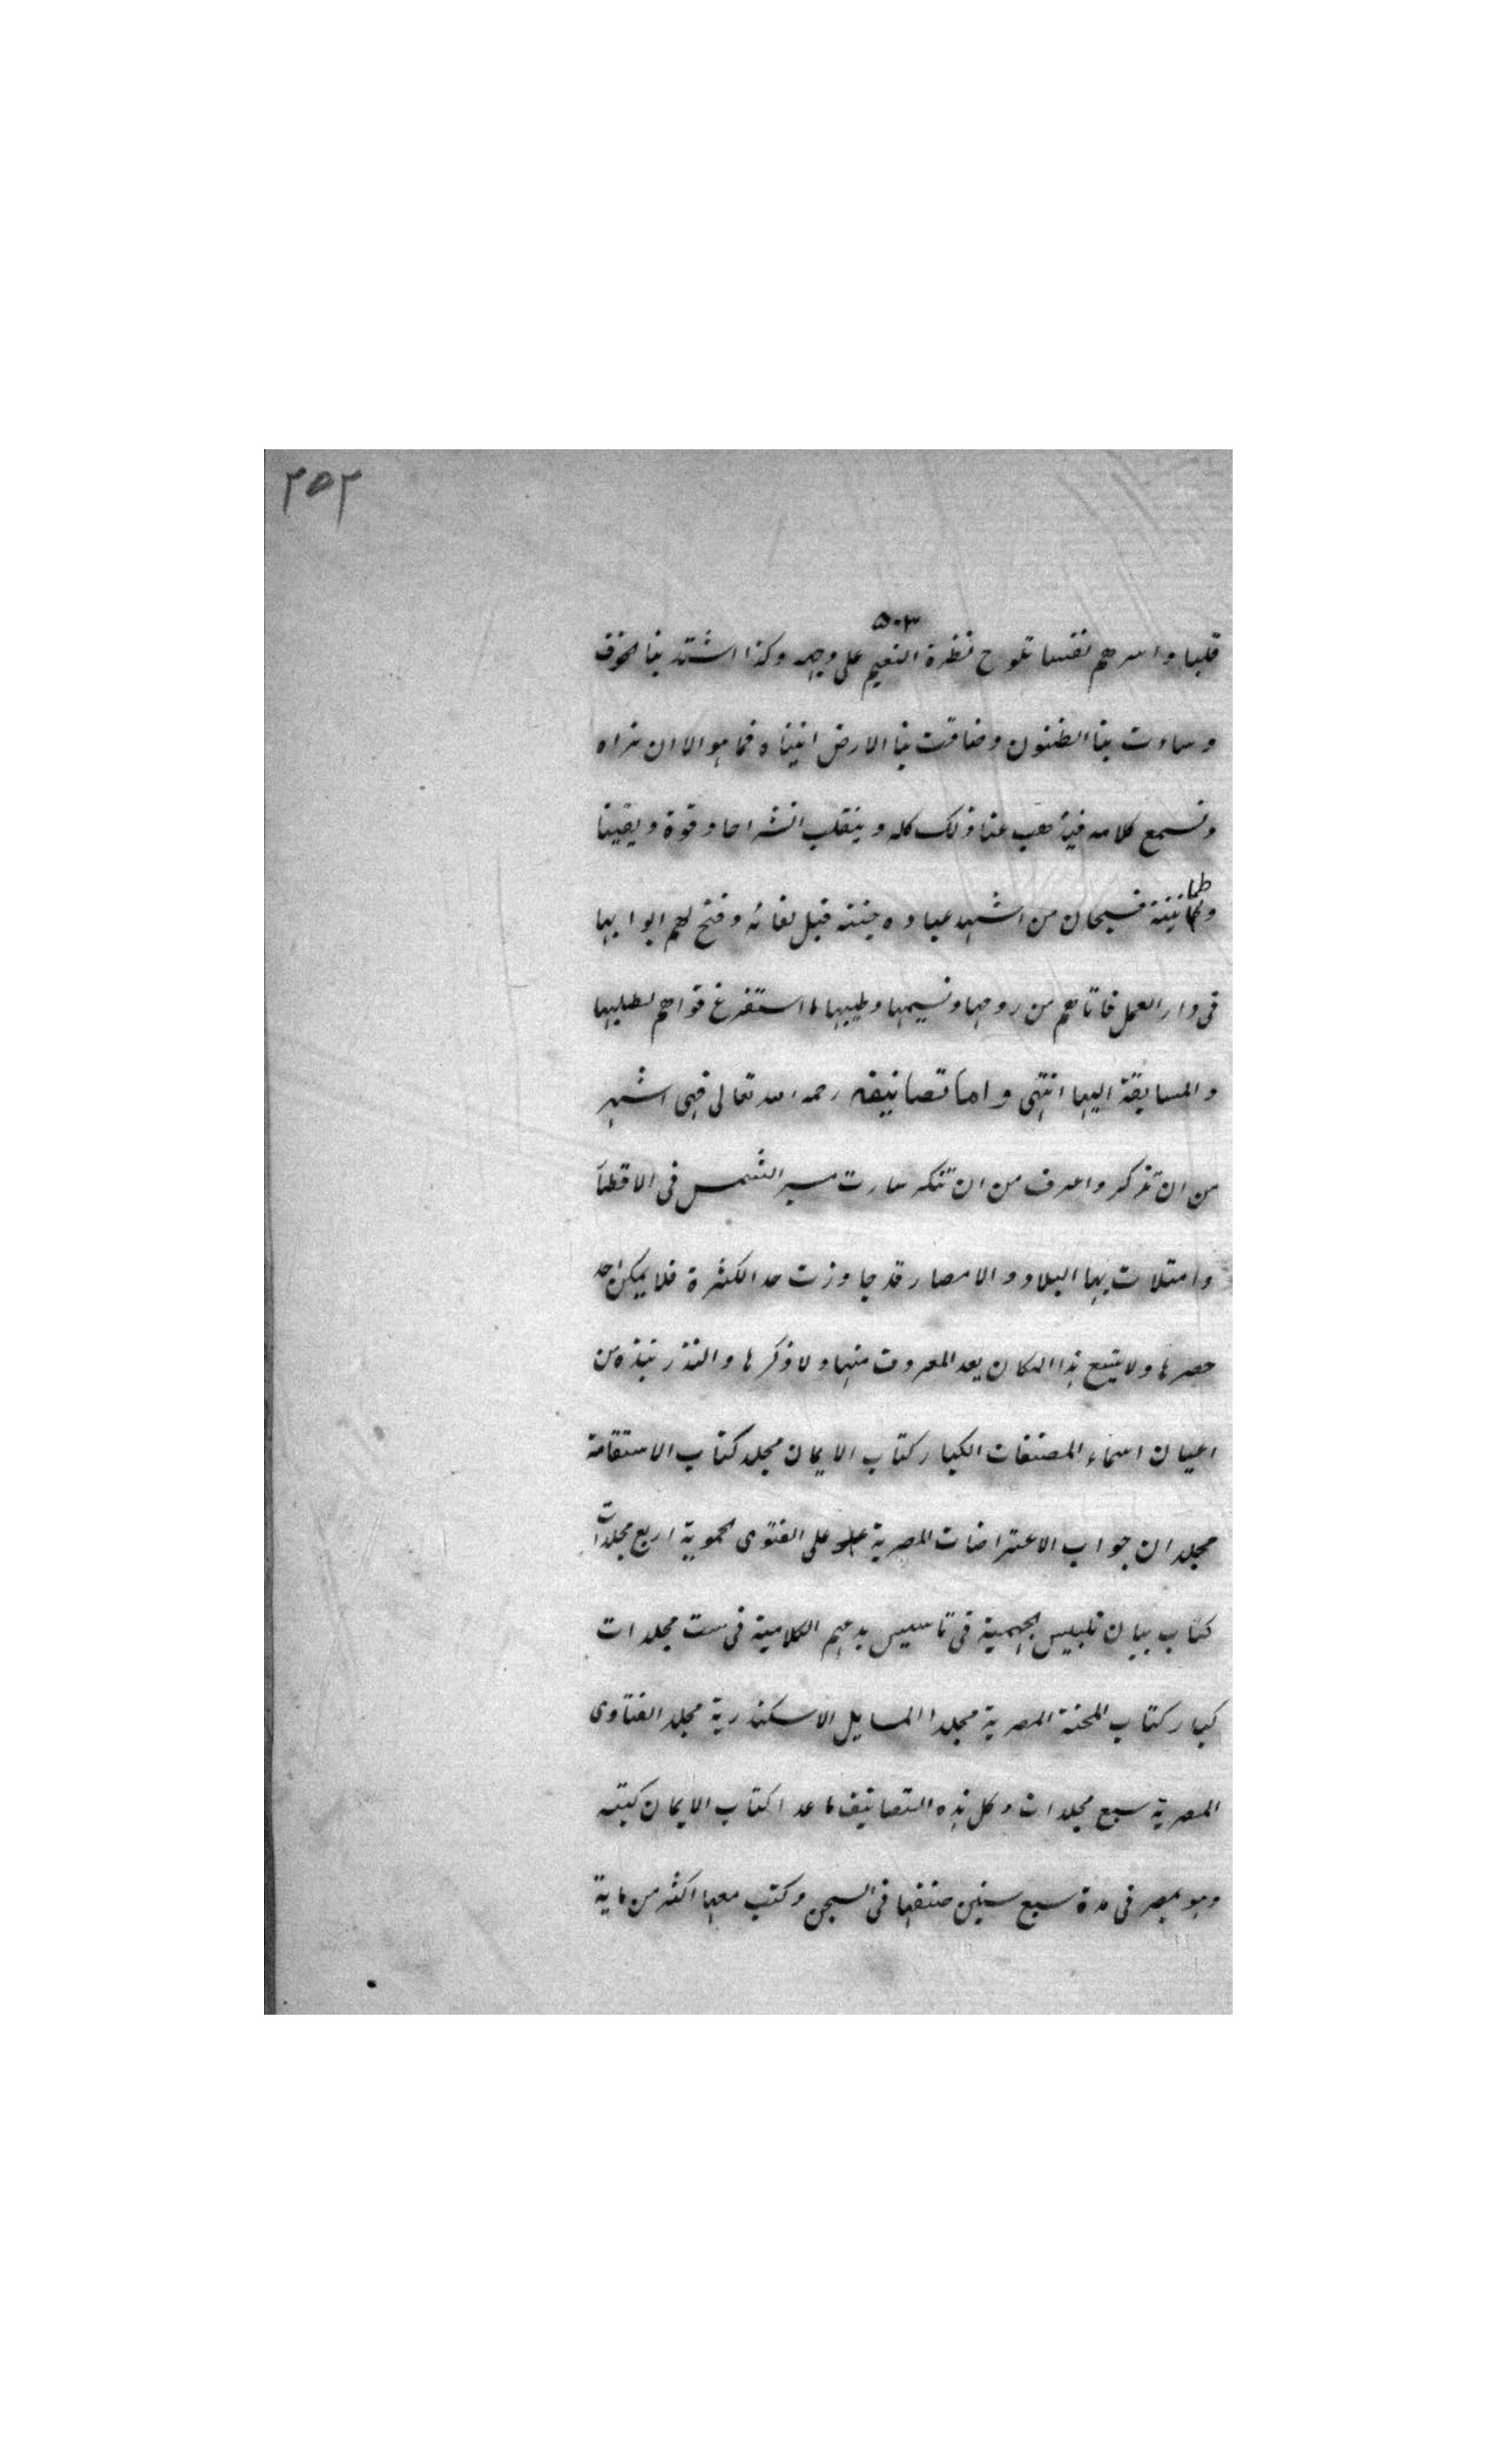 ٢٥٢
٥٠٣
قلبا واسرهم نفسا تلوح نظرة النعيم على وجهه وكذا اشتد بنا لخوف
وساءت بنا الظنون وضاقت بنا الارض اتيناه فما هو الا ان نراه
ونسمع كلامه فيذهب عنا ذلك كله وينقلب انشراحا وقوة ويقينا
وطمانينة فسبحان من اشهد عباده جنته قبل لقائه وفتح لهم ابوابها
فى دار العمل فاتاهم من روحها ونسيمها وطيبها ما استفرغ قواهم لطلبها
والمسابقة اليها انتهى واما تصانيفه رحمه الله تعالى فهى اشهر
من ان تذكر واعرف من ان تنكر سارت مسير الشمس فى الاقطار
وامتلات بها البلاد والامصار قد جاوزت حد الكثرة فلا يمكن احد
حصرها ولا يتسع هذا المكان بعد المعروف منها ولا ذكرها والنذر نبذه من
اعيان اسماء المصنفات الكبار كتاب الايمان مجلد كتاب الاستقامة
مجلدان جواب الاعتراضات المصرية على الفتوى لحموية اربع مجلدات
كتاب بيان تلبيس لجهمية فى تاسيس بدعهم الكلامية فى ست مجلدات
كبار كتاب المحنة المصرية مجلدا المسايل الاسكندرية مجلد الفتاوى
المصرية سبع مجلدات وكل هذه التصانيف ما عدا كتاب الايمان كتبه
وهو بمصر فى مدة سبع سنين صنفها فى السجن وكتب معها اكثر من ماية